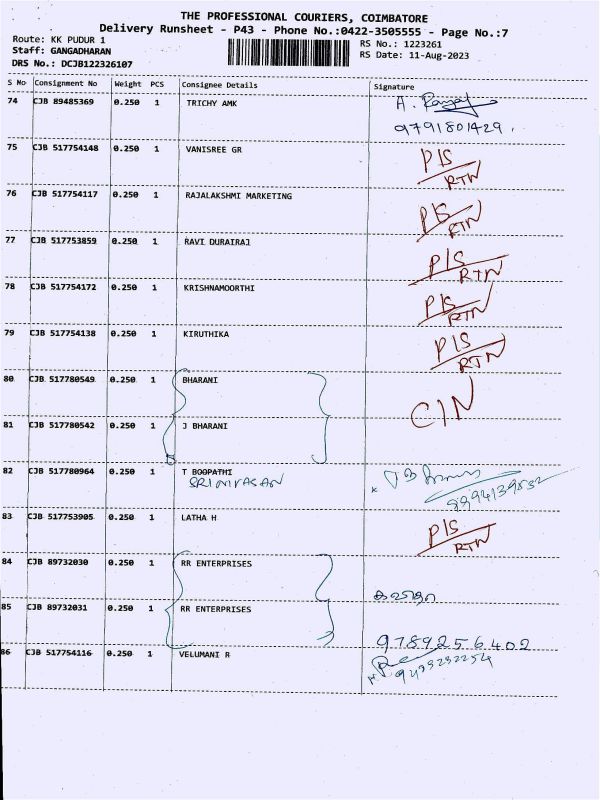 THE PROFESSIONAL COURIERS, COIMBATORE
Delivery Runsheet - P43 - Phone No.:0422-3505555 - Page No.:7
Route: KK PUDUR 1
RS No.: 1223261
Staff: GANGADHARAN
RS Date: 11-Aug-2023
DRS No.: DCJB122326107
S No Consignment No Weight PCS Consignee Details Signature
74 CJB 89485369 0.250 1 TRICHY AMK
9791801429.
75 CJB 517754148 0.250 1 VANISREE GR P/S
RTN
76 CJB 517754117 0.250 1 RAJALAKSHMI MARKETING P/S
RTN
77 CJB 517753859 0.250 1 RAVI DURAIRAJ P/S
RTN
78 CJB 517754172 0.250 1 KRISHNAMOORTHI P/S
RTN
79 CJB 517754138 0.250 1 KIRUTHIKA P/S
RTN
80 CJB 517780549 0.250 1 BHARANI
C/N
81 CJB 517780542 0.250 1 J BHARANI
82 CJB 517780964 0.250 1 T BOOPATHI
SRINIVASAN
83 CJB 517753905 0.250 1 LATHA H P/S
RTN
84 CJB 89732030 0.250 1 RR ENTERPRISES
85 CJB 89732031 0.250 1 RR ENTERPRISES
9789256402
86 CJB 517754116 0.250 1 VELUMANI R